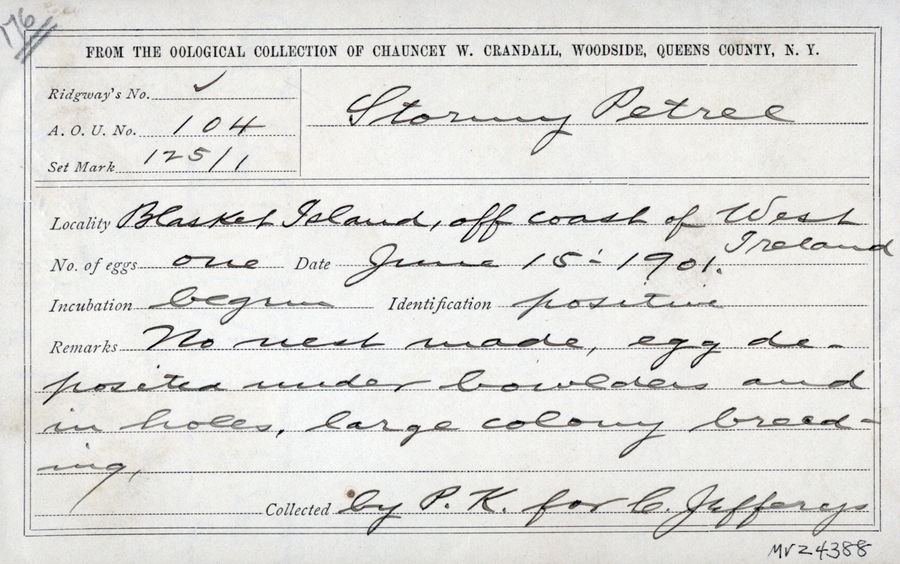 176
FROM THE OOLOGICAL COLLECTION OF CHAUNCEY W. CRANDALL, WOODSIDE, QUEENS COUNTY, N. Y.
Ridgway's No. ✓
A. O. U. No. 104
Set Mark 125/1
Stormy Petrel
Locality Blasket Island, off coast of West Ireland
No. of eggs one Date June 15- 1901.
Incubation begun Identification positive
Remarks No nest made, egg de-
posited under bowlders and
in holes, large colony breed-
ing,
Collected by P. K. for C. Jefferys
MVZ 4388